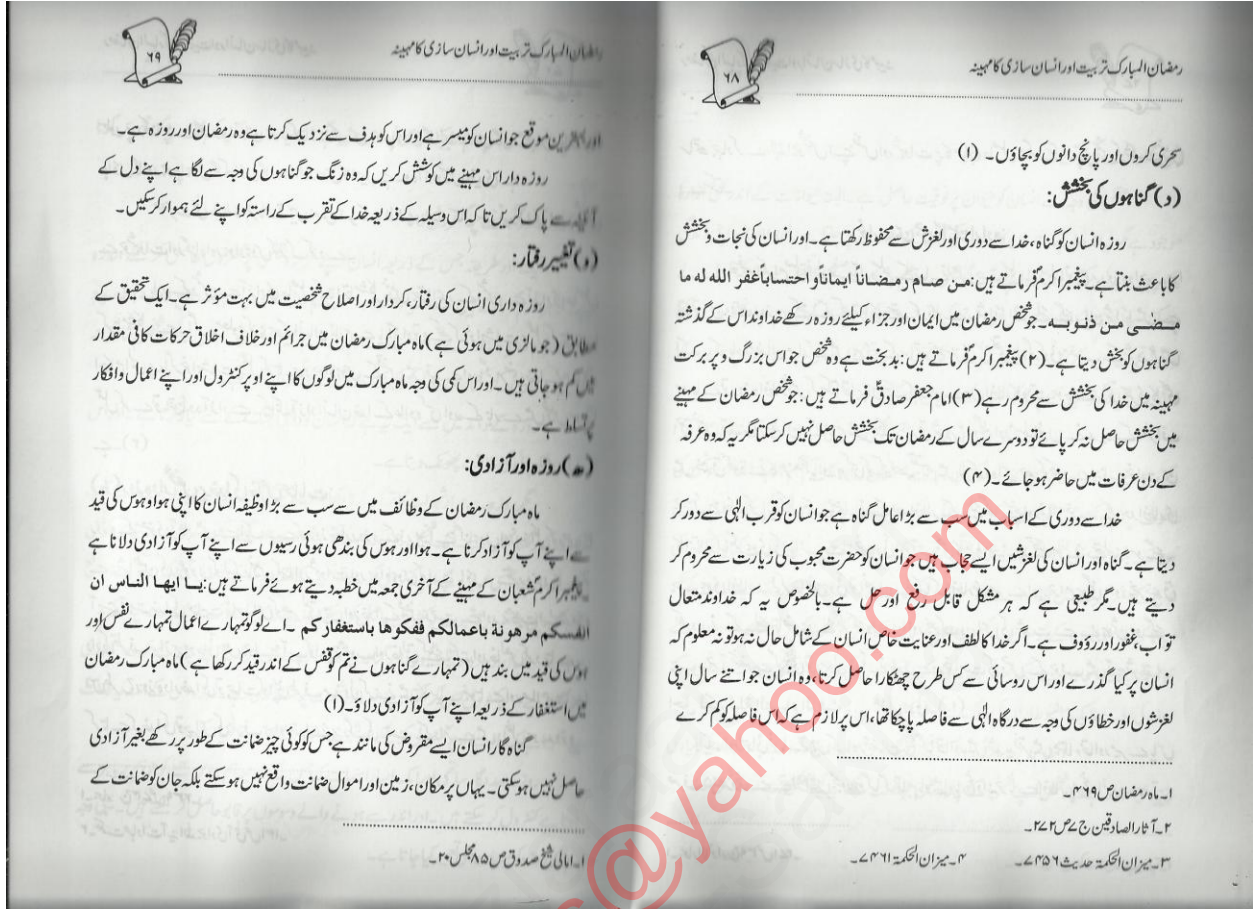 رمضان المبارک تربیت اور انسان سازی کا مہینہ
۶۸
سحری کروں اور پانچ دانوں کو بچاؤں۔ (۱)
(د) گناہوں کی بخشش:
روزہ انسان کو گناہ، خدا سے دوری اور لغزش سے محفوظ رکھتا ہے۔ اور انسان کی نجات و بخشش
کا باعث بنتا ہے۔ پیغمبر اکرمؐ فرماتے ہیں: من صام رمضاناً ایماناً و احتساباً غفر الله له ما
مضٰی من ذنوبه۔ جو شخص رمضان میں ایمان اور جزاء کیلئے روزہ رکھے خداوند اس کے گذشتہ
گناہوں کو بخش دیتا ہے۔ (۲) پیغمبر اکرمؐ فرماتے ہیں: بدبخت ہے وہ شخص جو اس بزرگ و پر برکت
مہینہ میں خدا کی بخشش سے محروم رہے (۳) امام جعفر صادقؑ فرماتے ہیں: جو شخص رمضان کے مہینے
میں بخشش حاصل نہ کر پائے تو دوسرے سال کے رمضان تک بخشش حاصل نہیں کر سکتا مگر یہ کہ وہ عرفہ
کے دن عرفات میں حاضر ہو جائے۔ (۴)
خدا سے دوری کے اسباب میں سب سے بڑا عامل گناہ ہے جو انسان کو قرب الٰہی سے دور کر
دیتا ہے۔ گناہ اور انسان کی لغزشیں ایسے حجاب ہیں جو انسان کو حضرت محبوب کی زیارت سے محروم کر
دیتے ہیں۔ مگر طبیعی ہے کہ ہر مشکل قابل رفع اور حل ہے۔ بالخصوص یہ کہ خداوند متعال
تواب، غفور اور رؤوف ہے۔ اگر خدا کا لطف اور عنایت خاص انسان کے شامل حال نہ ہو تو نہ معلوم کہ
انسان پر کیا گذرے اور اس روسائی سے کس طرح چھٹکارا حاصل کرتا، وہ انسان جو اتنے سال اپنی
لغزشوں اور خطاؤں کی وجہ سے درگاہ الٰہی سے فاصلہ پا چکا تھا، اس پر لازم ہے کہ اس فاصلہ کو کم کرے
۱۔ ماہ رمضان ص ۴۶۹۔
۲۔ آثار الصادقین ج ۷ ص ۲۷۲۔
۳۔ میزان الحکمۃ حدیث ۷۴۵۶۔ ۴۔ میزان الحکمۃ ۷۴۶۱۔
رمضان المبارک تربیت اور انسان سازی کا مہینہ
۶۹
اور بہترین موقع جو انسان کو میسر ہے اور اس کو ہدف سے نزدیک کرتا ہے وہ رمضان اور روزہ ہے۔
روزہ دار اس مہینے میں کوشش کریں کہ وہ زنگ جو گناہوں کی وجہ سے لگا ہے اپنے دل کے
آئینہ سے پاک کریں تاکہ اس وسیلہ کے ذریعہ خدا کے تقرب کے راستہ کو اپنے لئے ہموار کر سکیں۔
(و) تغییر رفتار:
روزہ داری انسان کی رفتار، کردار اور اصلاح شخصیت میں بہت مؤثر ہے۔ ایک تحقیق کے
مطابق (جو مالزی میں ہوئی ہے) ماہ مبارک رمضان میں جرائم اور خلاف اخلاق حرکات کافی مقدار
میں کم ہو جاتی ہیں۔ اور اس کمی کی وجہ ماہ مبارک میں لوگوں کا اپنے اوپر کنٹرول اور اپنے اعمال وافکار
پر تسلط ہے۔
(ھ) روزہ اور آزادی:
ماہ مبارک رمضان کے وظائف میں سے سب سے بڑا وظیفہ انسان کا اپنی ہوا و ہوس کی قید
سے اپنے آپ کو آزاد کرنا ہے۔ ہوا اور ہوس کی بندھی ہوئی رسیوں سے اپنے آپ کو آزادی دلانا ہے
۔ پیغمبر اکرمؐ شعبان کے مہینے کے آخری جمعہ میں خطبہ دیتے ہوئے فرماتے ہیں: یا ایها الناس ان
انفسکم مرهونة باعمالکم ففکوها باستغفارکم ۔ اے لوگو تمہارے اعمال تمہارے نفس اور
ہوس کی قید میں بند ہیں (تمہارے گناہوں نے تم کو قفس کے اندر قید کر رکھا ہے) ماہ مبارک رمضان
میں استغفار کے ذریعہ اپنے آپ کو آزادی دلاؤ۔ (۱)
گناہ گار انسان ایسے مقروض کی مانند ہے جس کو کوئی چیز ضمانت کے طور پر رکھے بغیر آزادی
حاصل نہیں ہو سکتی۔ یہاں پر مکان، زمین اور اموال ضمانت واقع نہیں ہو سکتے بلکہ جان کو ضمانت کے
۱۔ امالی شیخ صدوق ص ۸۵ مجلس ۲۰۔
s@yahoo.com